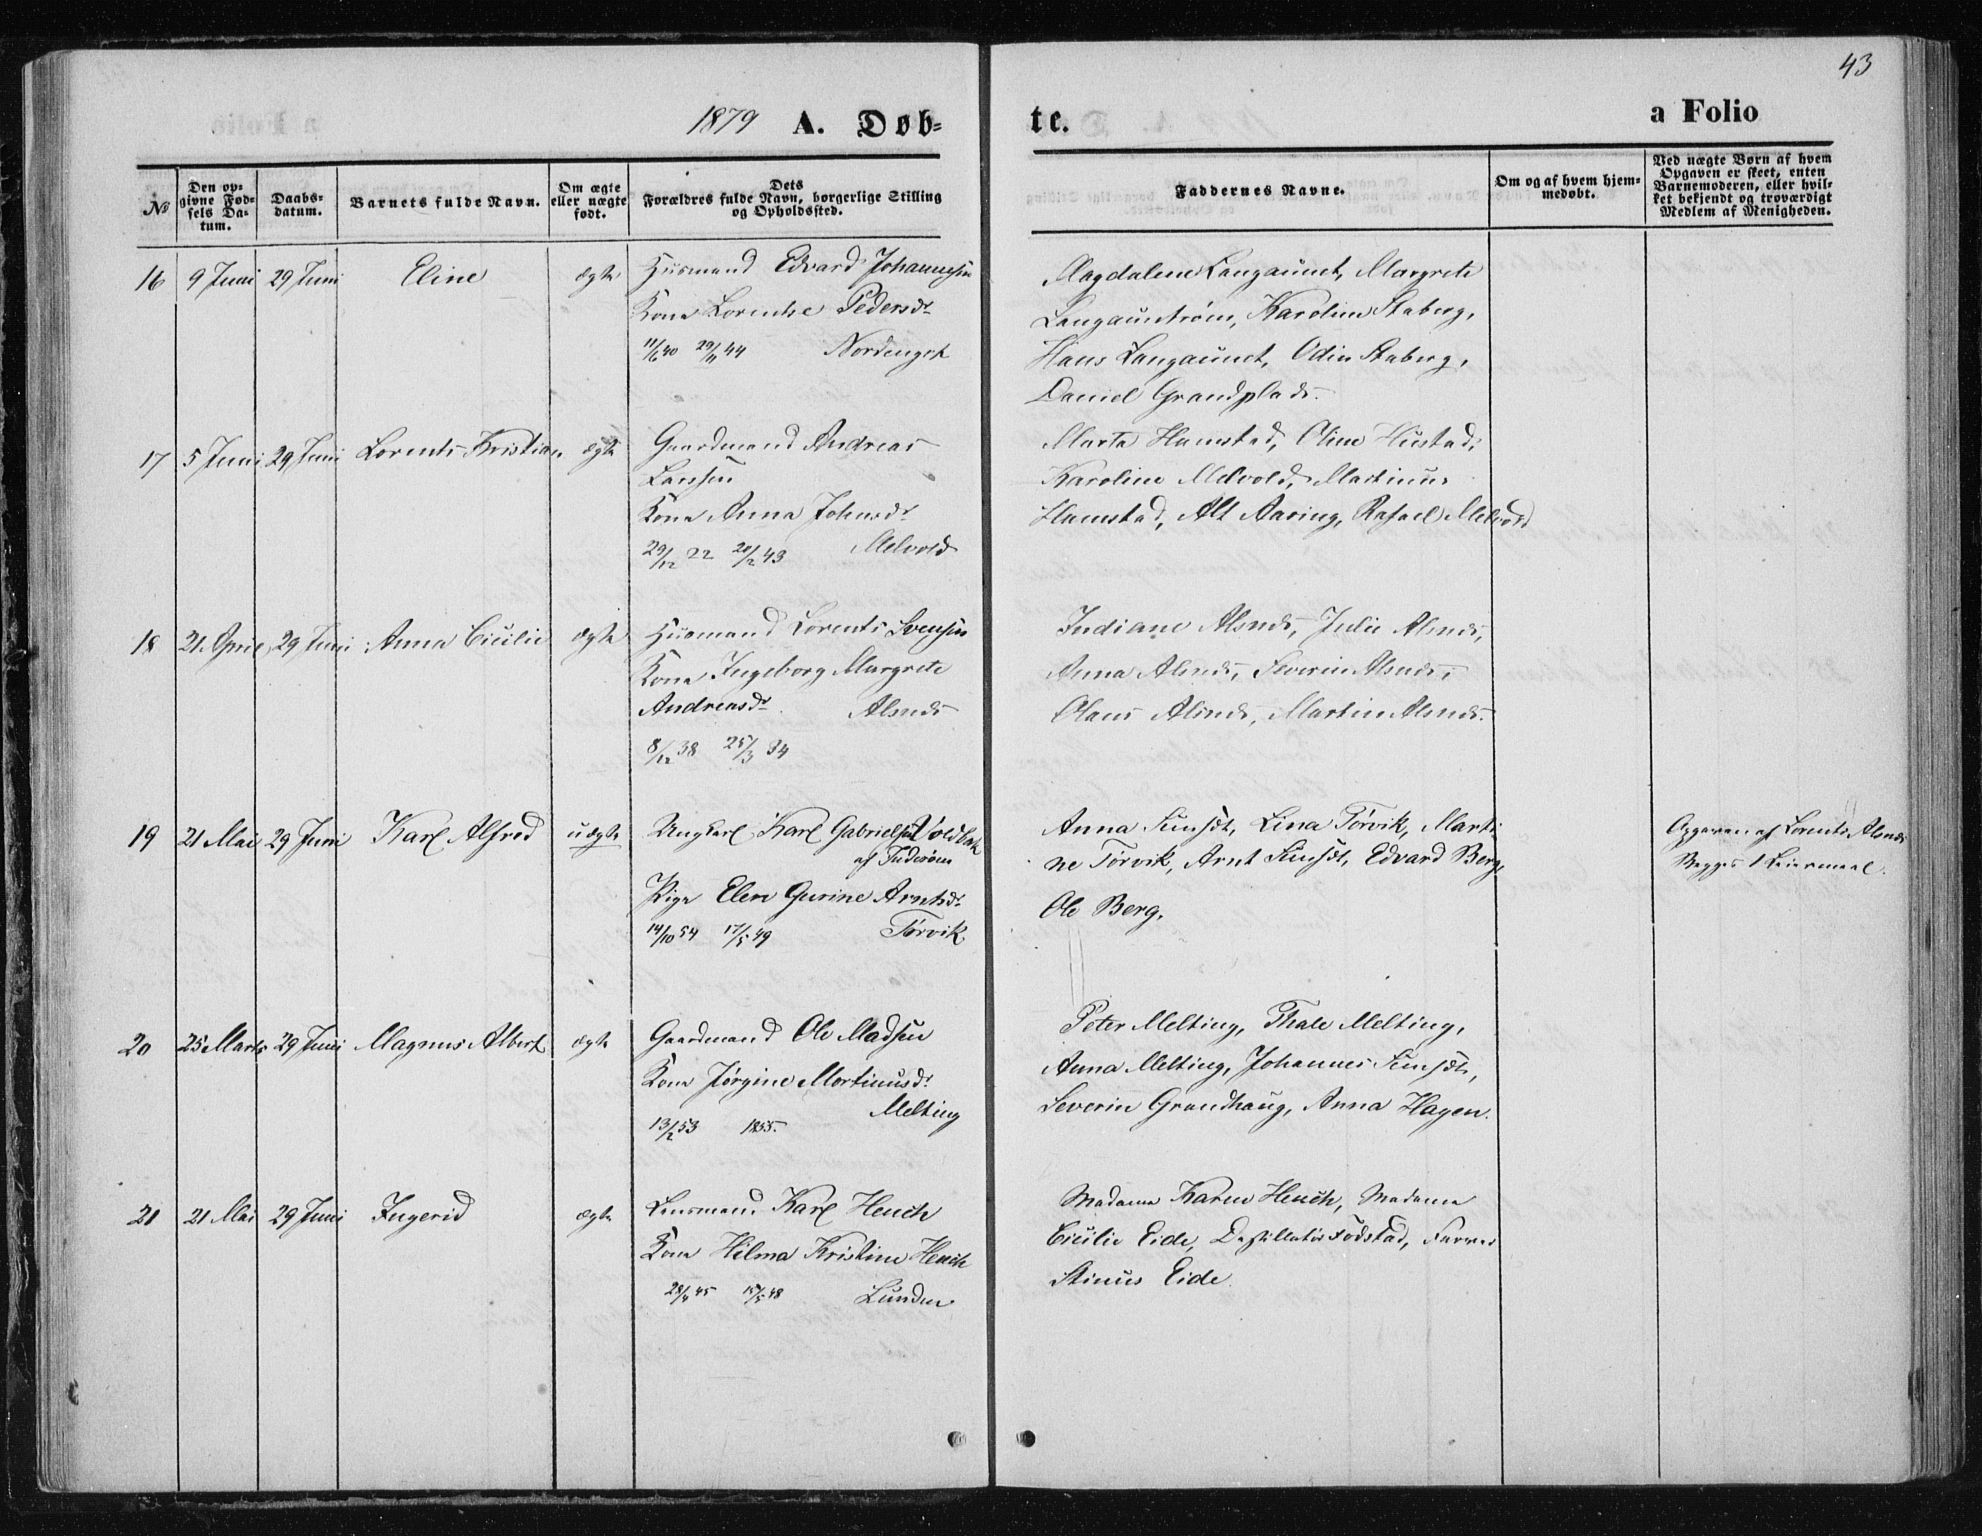 43
1879 A. Døb-
te.
a Folio
No
Den op-
givne Fød-
sels Da-
tum.
Daabs-
datum.
Barnets fulde Navn.
Om ægte
eller nægte
født.
Dets
Forældres fulde Navn, borgerlige Stilling
og Opholdssted.
Faddernes Navne.
Om og af hvem hjem-
medøbt.
Ved nægte Børn af hvem
Opgaven er skeet, enten
Barnemoderen, eller hvil-
ket bekjendt og troværdigt
Medlem af Menigheden.
16 9 Juni 29 Juni Eline ægte
Husmand Edvard Johannesen
Kone Lorentse Pedersdr
11/6 40 29/11 44 Nordenget
Magdalene Langaunet, Margrete
Langauntrøen, Karoline Staberg,
Hans Langaunet, Odin Staberg,
Daniel Grandplads.
17 5 Juni 29 Juni Lorents Kristian ægte
Gaardmand Andreas
Larssen
Kone Anna Johnsdr
29/12 22 20/2 43 Melvold
Marta Hamstad, Oline Hustad,
Karoline Melvold, Martinus
Hamstad, Alt Aaring, Rafael Melvold
18 21 April 29 Juni Anna Cicilie ægte
Husmand Lorents Svensen
Kone Ingeborg Margrete
Andreasdr Alsnes
8/12 38 25/3 34
Indiane Alsnes, Julie Alsnes,
Anna Alsnes, Severin Alsnes,
Olaus Alsnes, Martin Alsnes.
19 21 Mai 29 Juni Karl Alfred uægte
Ungkarl Karl Gabrielsen Voldbak
af Inderøen
Pige Elen Gurine Arntsdr
14/10 54 17/5 49 Tørvik
Anna Sundst, Lina Tørvik, Marti-
ne Tørvik, Arnt Sundst, Edvard Berg,
Ole Berg.
Opgaven af Lorents Alsnes
Begges 1 Leiermaal.
20 25 Marts 29 Juni Magnus Albert ægte
Gaardmand Ole Madsen
Kone Jørgine Mortinusdr
Melting
13/2 53 1855.
Peter Melting, Thale Melting,
Anna Melting, Johannes Sundst,
Severin Grandhaug, Anna Hagen.
21 21 Mai 29 Juni Ingerid ægte
Lensmand Karl Heuch
Kone Hilma Kristine Heuch
28/4 45 15/5 48 Lunden
Madame Karen Heuch, Madame
Cicilie Eide, Destillatør Fodstad, Farver
Stinus Eide.